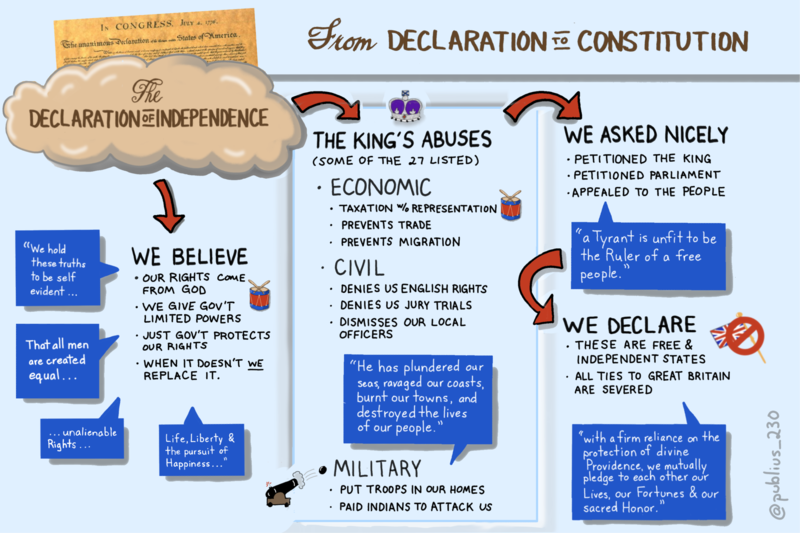 In CONGRESS, July 4, 1776.
The unanimous Declaration
States of America.
From DECLARATION TO CONSTITUTION
The
DECLARATION OF INDEPENDENCE
WE BELIEVE
• OUR RIGHTS COME
FROM GOD
• WE GIVE GOV'T
LIMITED POWERS
• JUST GOV'T PROTECTS
OUR RIGHTS
• WHEN IT DOESN'T WE
REPLACE IT.
"We hold
these truths
to be self
evident...
That all men
are created
equal...
...unalienable
Rights...
Life, Liberty &
the pursuit of
Happiness..."
THE KING'S ABUSES
(SOME OF THE 27 LISTED)
• ECONOMIC
• TAXATION W/O REPRESENTATION
• PREVENTS TRADE
• PREVENTS MIGRATION
• CIVIL
• DENIES US ENGLISH RIGHTS
• DENIES US JURY TRIALS
• DISMISSES OUR LOCAL
OFFICERS
"He has plundered our
seas, ravaged our coasts,
burnt our towns, and
destroyed the lives
of our people."
• MILITARY
• PUT TROOPS IN OUR HOMES
• PAID INDIANS TO ATTACK US
WE ASKED NICELY
• PETITIONED THE KING
• PETITIONED PARLIAMENT
• APPEALED TO THE PEOPLE
"a Tyrant is unfit to be
the Ruler of a free
people."
WE DECLARE
• THESE ARE FREE &
INDEPENDENT STATES
• ALL TIES TO GREAT BRITAIN
ARE SEVERED
"with a firm reliance on the
protection of divine
Providence, we mutually
pledge to each other our
Lives, our Fortunes & our
sacred Honor."
@publius_230